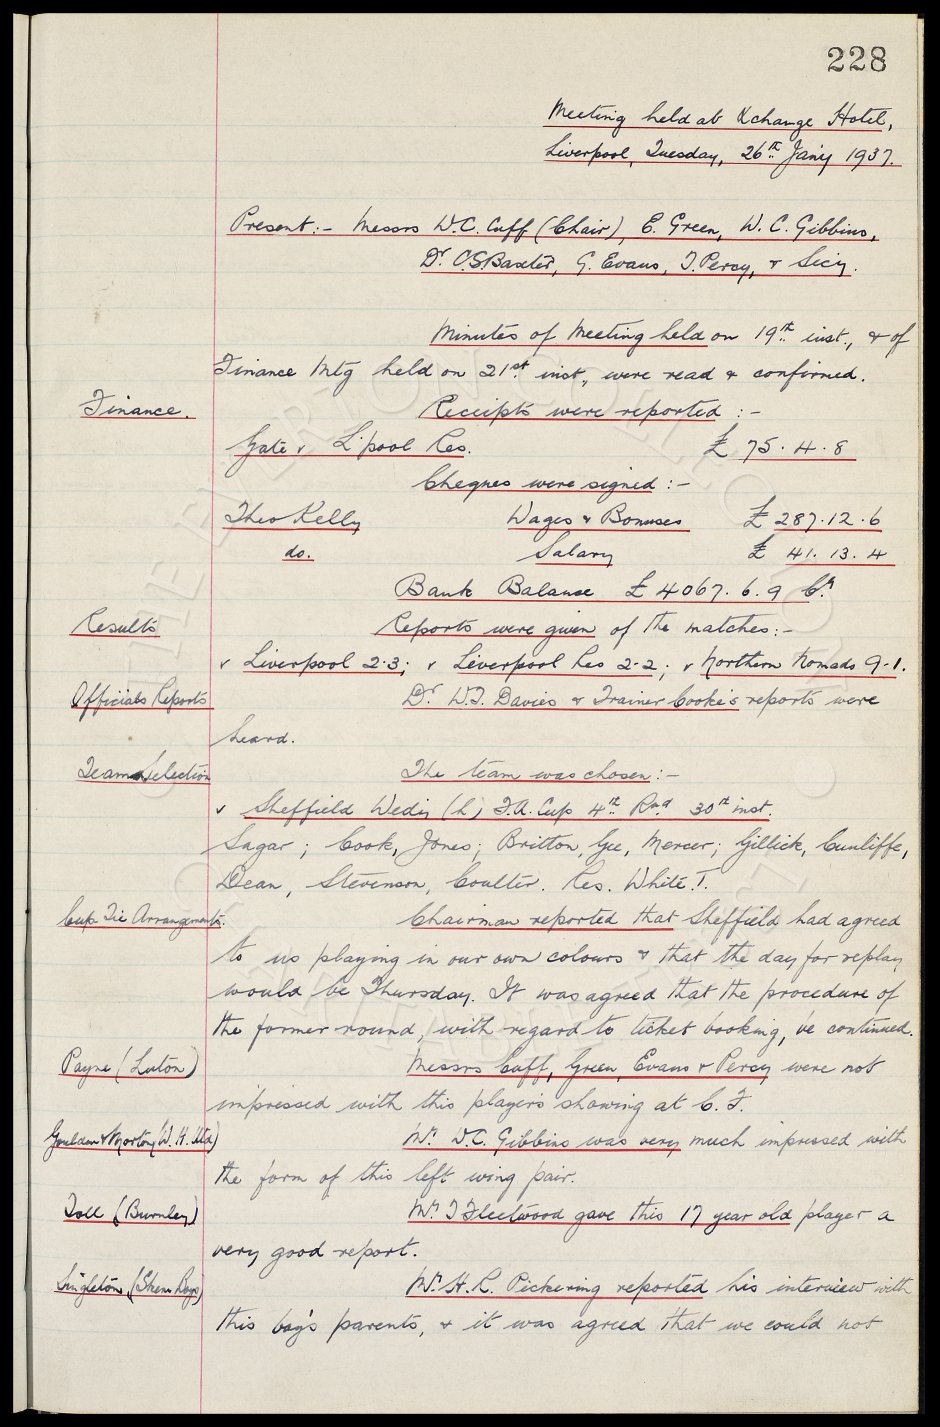 228
Meeting held at Xchange Hotel,
Liverpool, Tuesday, 26th Jan'y 1937.
Present:- Messrs W.C. Cuff (Chair), E. Green, W. C. Gibbins,
Dr. C.S Baxter, G. Evans, T. Percy, & Sec'y.
Minutes of Meeting held on 19th inst., & of
Finance Mtg held on 21st inst., were read & confirmed.
Finance. Receipts were reported :-
Gate v L'pool Res. £ 75. 4. 8
Cheques were signed :-
Theo Kelly Wages & Bonuses £ 287. 12. 6
do. Salary £ 41. 13. 4
Bank Balance £ 4067. 6. 9 Cr.
Results Reports were given of the matches:-
v Liverpool 2-3; v Liverpool Res 2-2; v Northern Nomads 9-1.
Officials Reports Dr. W.T. Davies & Trainer Cooke's reports were
heard.
Team Selection The team was chosen :-
v Sheffield Wed'y (h) F.A. Cup 4th Rnd 30th inst.
Sagar; Cook, Jones; Britton, Gee, Mercer; Gillick, Cunliffe,
Dean, Stevenson, Coulter. Res. White T.
Cup Tie Arrangements. Chairman reported that Sheffield had agreed
to us playing in our own colours & that the day for replay
would be Thursday. It was agreed that the procedure of
the former round, with regard to ticket booking, be continued.
Payne (Luton) Messrs Cuff, Green, Evans & Percy were not
impressed with this player's showing at C. F.
Goulden & Morton (W. H. Utd) Mr. W.C. Gibbins was very much impressed with
the form of this left wing pair.
Toll (Burnley) Mr. T Fleetwood gave this 17 year old player a
very good report.
Singleton (Skem Boys) Mr. H. R. Pickering reported his interview with
this boy's parents, & it was agreed that we could not
THE EVERTON COLLECTION
CHARITABLE TRUST